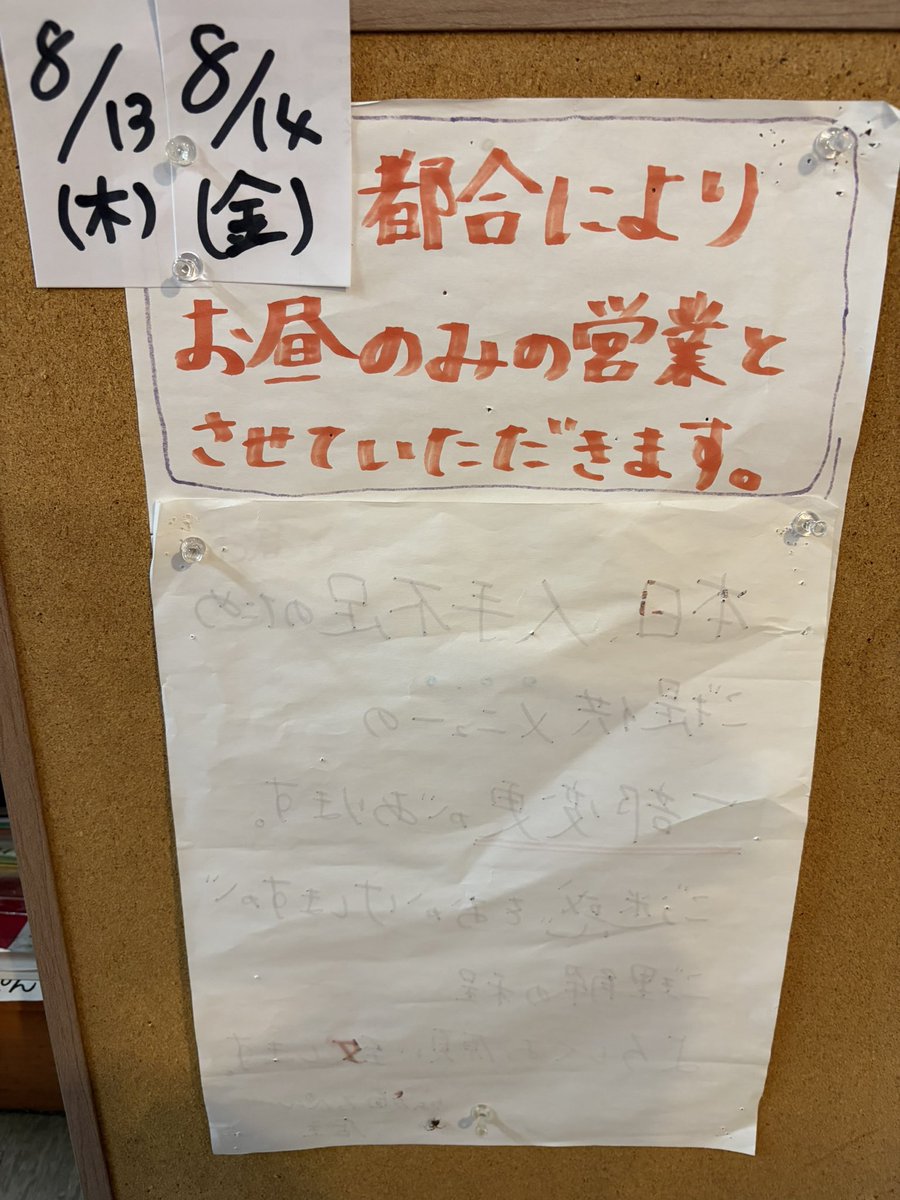 8/13
(木)
8/14
(金)
都合により
お昼のみの営業と
させていただきます。
本日 人手不足のため
ご提供メニューの
一部変更があります。
ご迷惑をおかけしますが
ご理解の程
よろしくお願い致します。